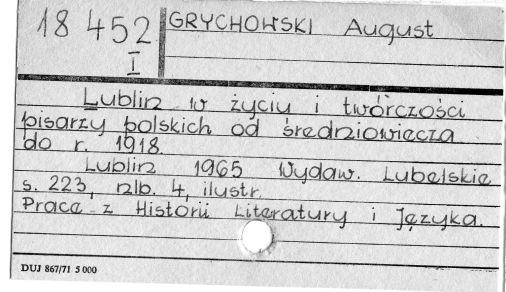 18 452
I
GRYCHOWSKI August
Lublin w życiu i twórczości
pisarzy polskich od średniowiecza
do r. 1918.
Lublin 1965 Wydaw. Lubelskie
s. 223, nlb. 4, ilustr.
Prace z Historii Literatury i Języka.
DUJ 867/71 5 000